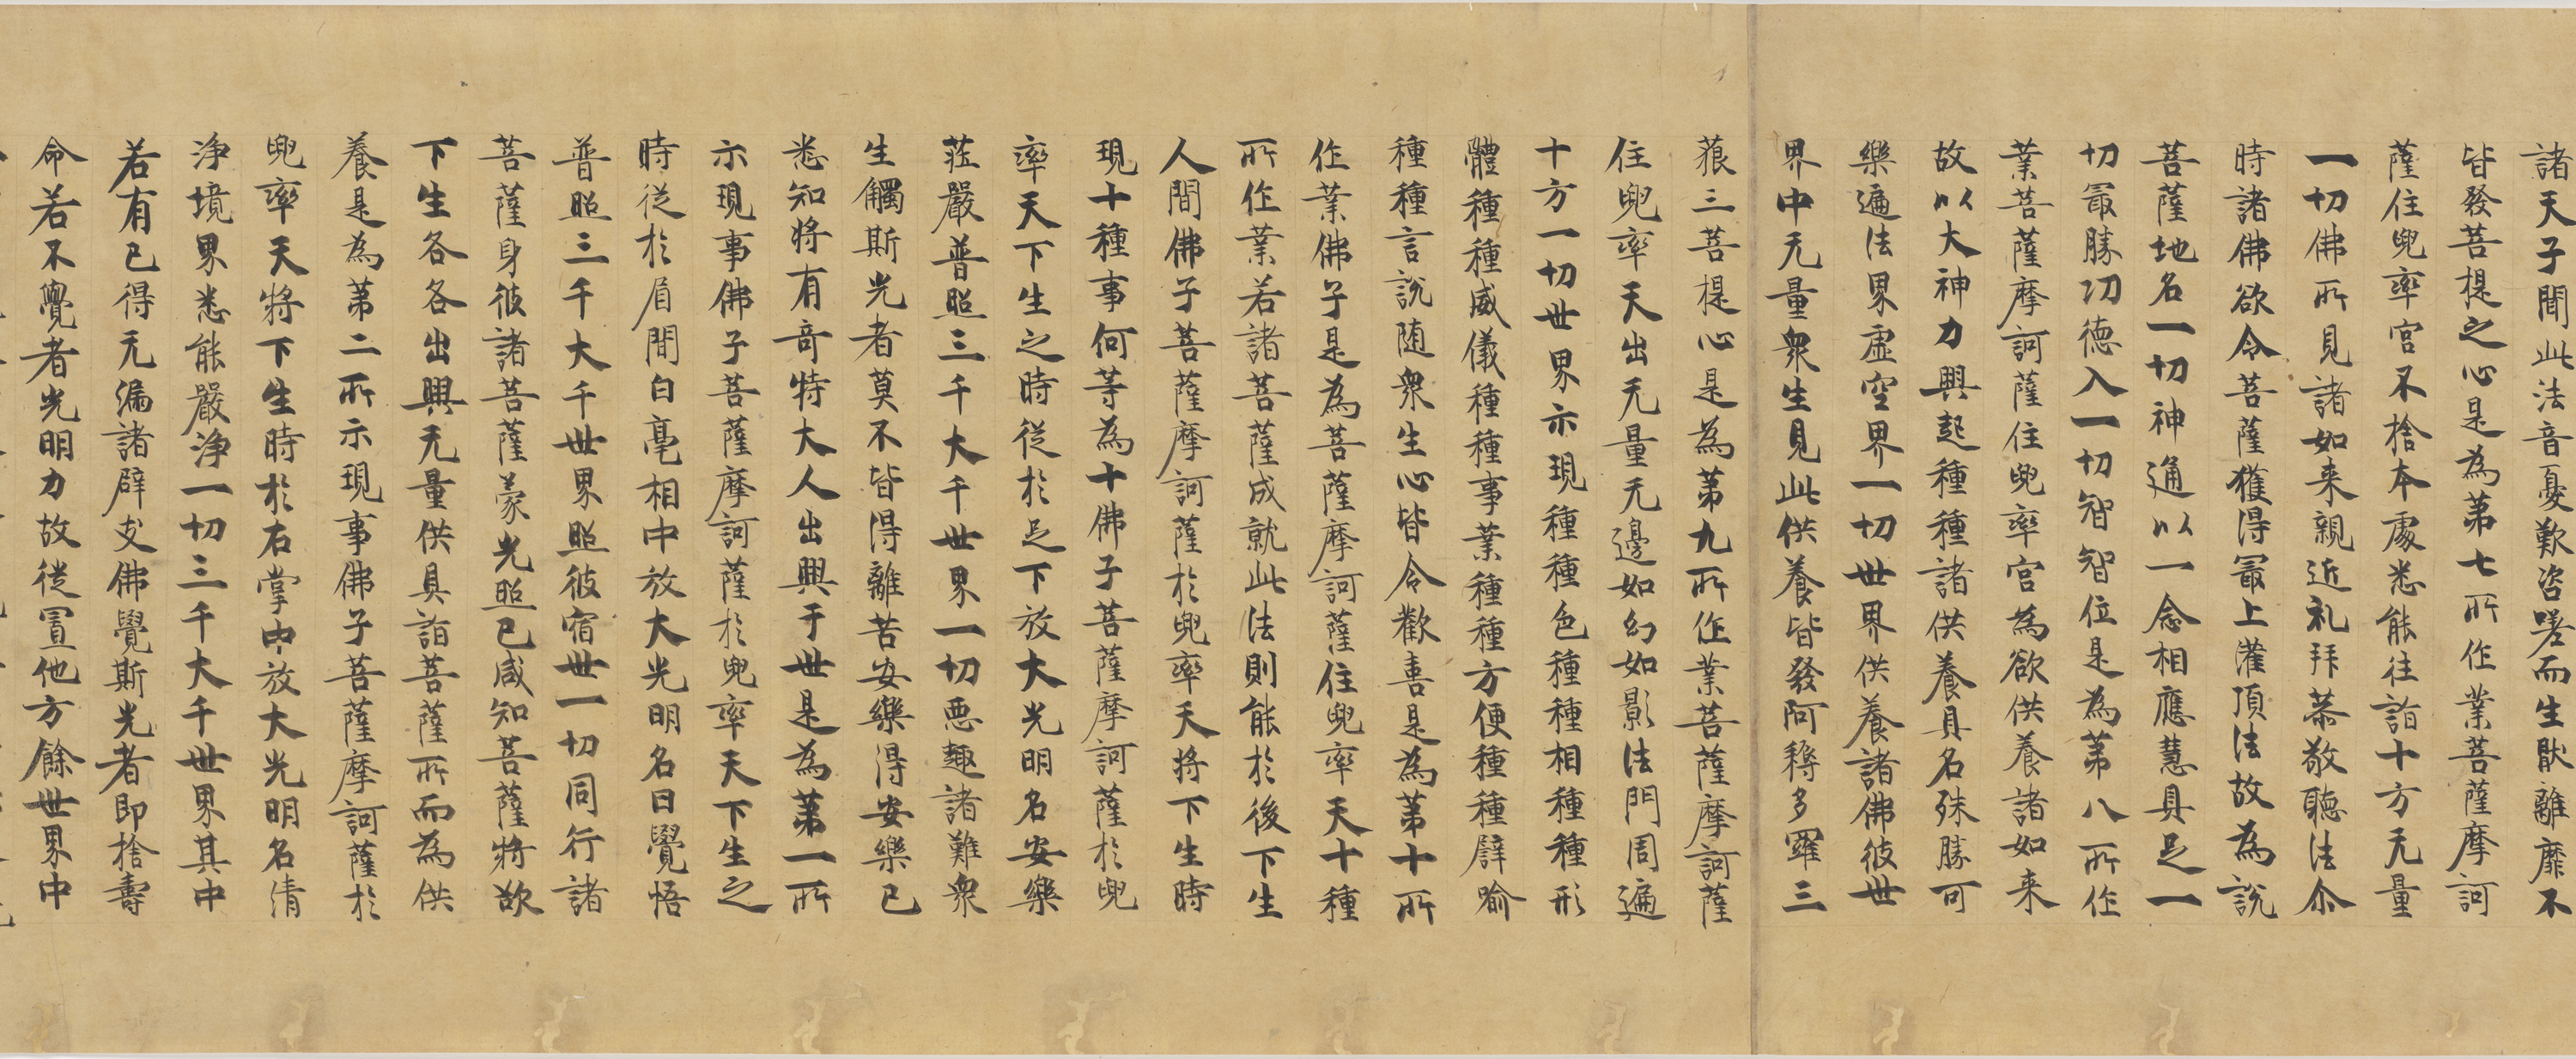 諸天子聞此法音憂歎咨嗟而生猒離靡不
皆發菩提之心是為第七所作業菩薩摩訶
薩住兜率宮不捨本處悉能往詣十方无量
一切佛所見諸如来親近礼拜恭敬聽法尒
時諸佛欲令菩薩獲得冣上灌頂法故為說
菩薩地名一切神通以一念相應慧具足一
切冣勝㓛德入一切智智位是為第八所作
業菩薩摩訶薩住兜率宮為欲供養諸如来
故以大神力興起種種諸供養具名殊勝可
樂遍法界虛空界一切世界供養諸佛彼世
界中无量衆生見此供養皆發阿耨多羅三
藐三菩提心是為第九所作業菩薩摩訶薩
住兜率天出无量无邊如幻如影法門周遍
十方一切世界示現種種色種種相種種形
體種種威儀種種事業種種方便種種譬喻
種種言說随衆生心皆令歡喜是為第十所
作業佛子是為菩薩摩訶薩住兜率天十種
所作業若諸菩薩成就此法則能於後下生
人間佛子菩薩摩訶薩於兜率天将下生時
現十種事何等為十佛子菩薩摩訶薩於兜
率天下生之時従於足下放大光明名安樂
莊嚴普照三千大千世界一切悪趣諸難衆
生觸斯光者莫不皆得離苦安樂得安樂已
悉知将有奇特大人出興于世是為第一所
示現事佛子菩薩摩訶薩於兜率天下生之
時従於眉間白毫相中放大光明名曰覺悟
普照三千大千世界照彼宿世一切同行諸
菩薩身彼諸菩薩蒙光照已咸知菩薩将欲
下生各各出興无量供具詣菩薩所而為供
養是為第二所示現事佛子菩薩摩訶薩於
兜率天将下生時於右掌中放大光明名清
浄境界悉能嚴浄一切三千大千世界其中
若有已得无漏諸辟支佛覺斯光者即捨壽
命若不覺者光明力故従置他方餘世界中